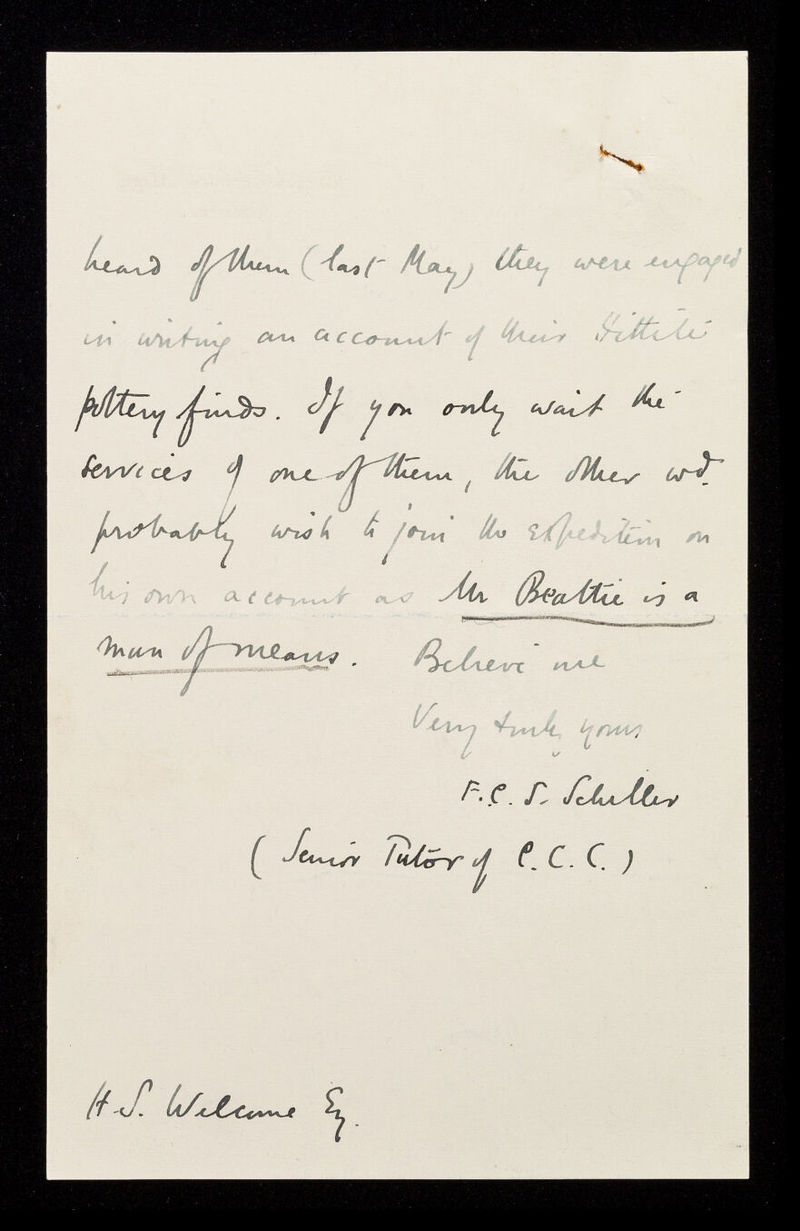 heard of them (last May) they were engaged
in writing an account of their Hittite
pottery finds. If you only wait the
services of one of them, the other wd.
probably wish to join the expedition on
his own account as Mr Beattie is a
man of means. Believe me
Very truly yours
F.C.S. Schiller
(Senior Tutor of C.C.C.)
H.S. Welcome Esq.